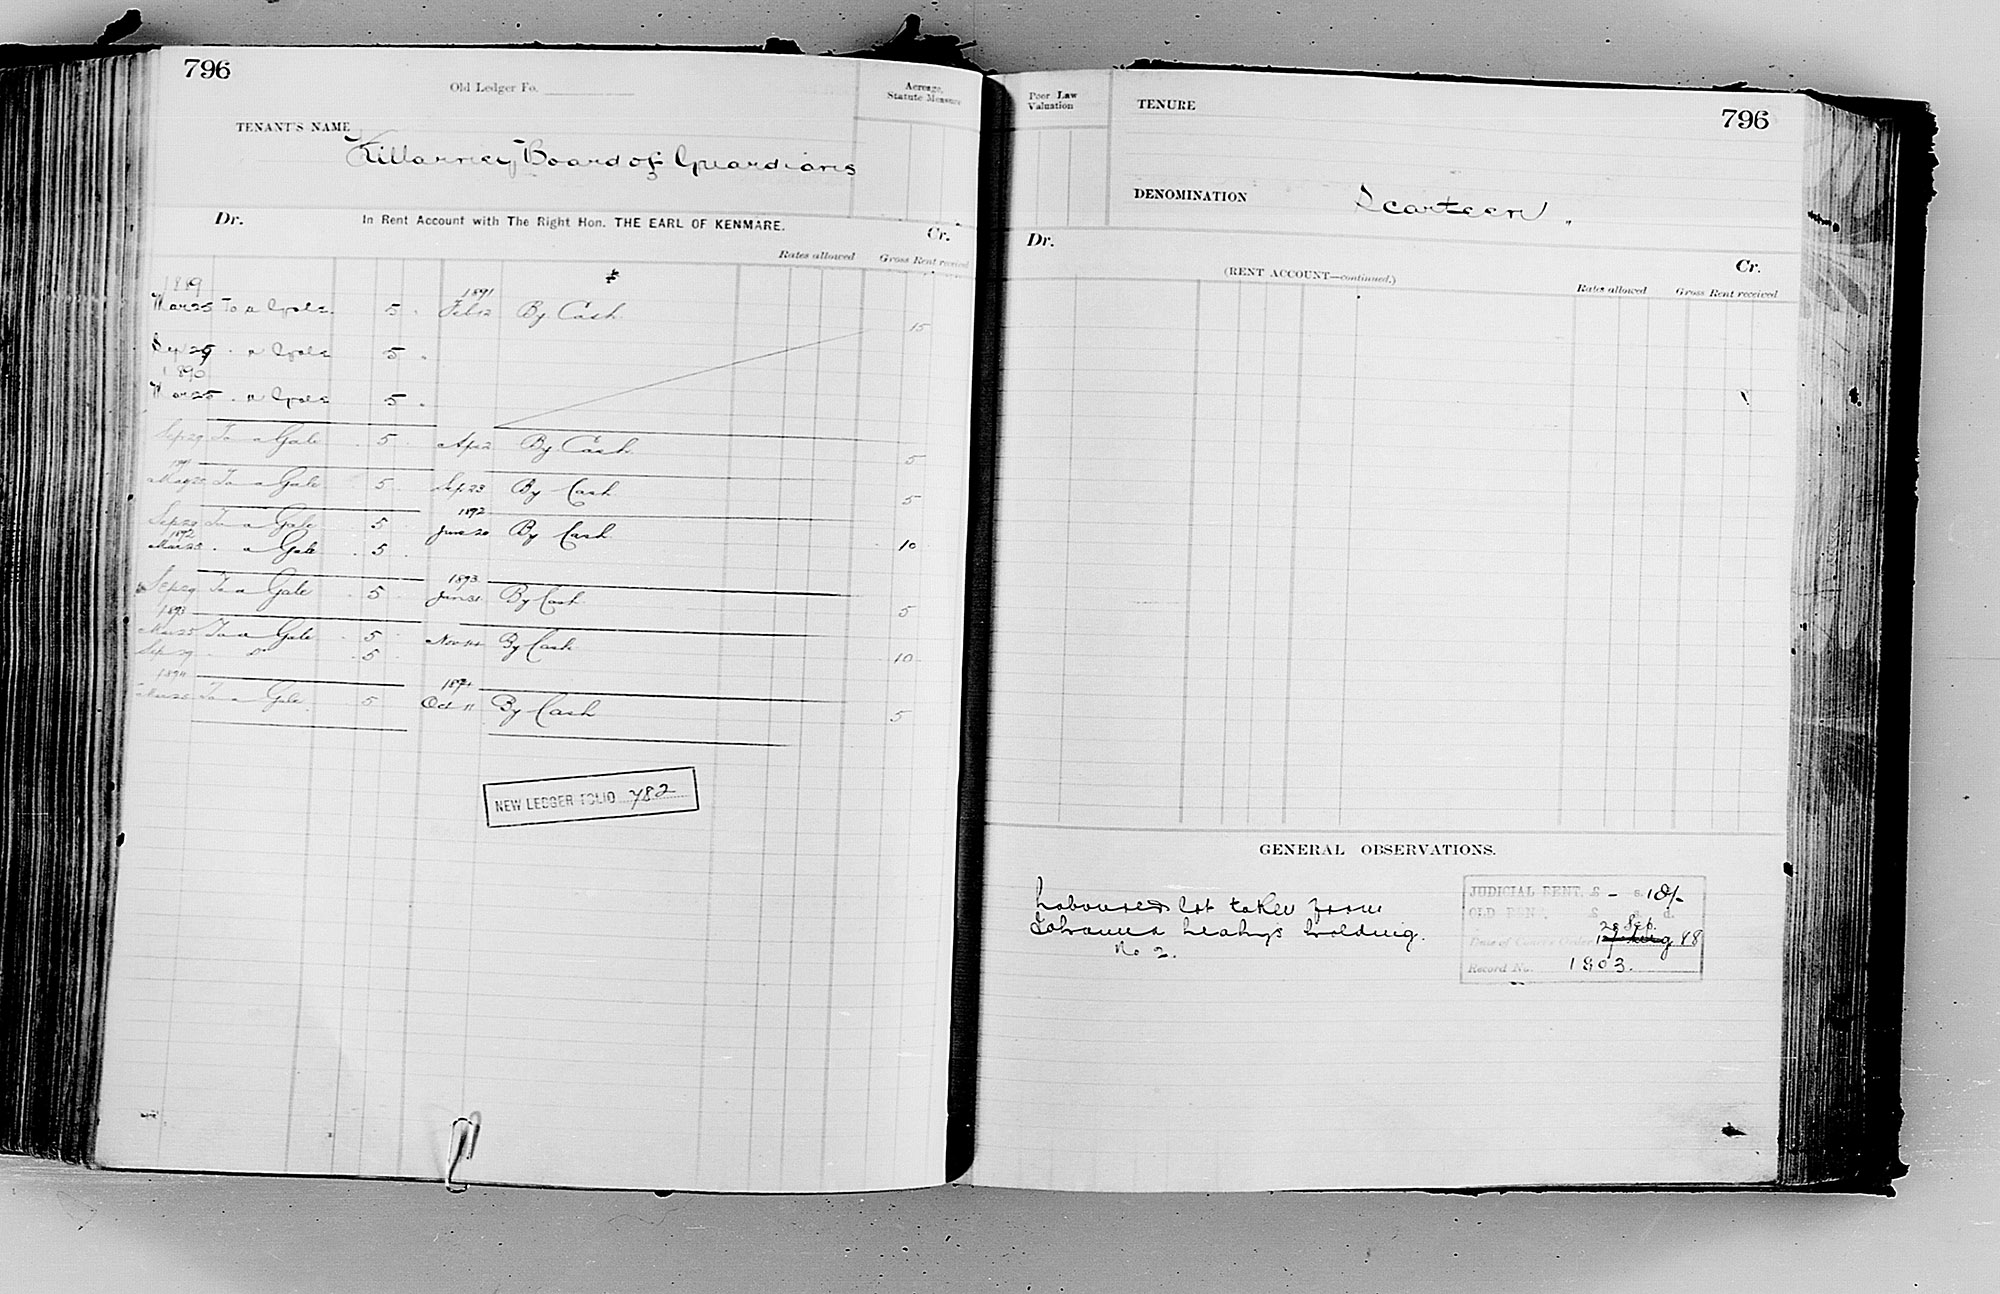 796
Old Ledger Fo.
Acreage, Statute Measure
TENANT'S NAME
Killarney Board of Guardians
Dr. In Rent Account with The Right Hon. THE EARL OF KENMARE. Cr.
Rates allowed Gross Rent received
1889 1891
Mar 25 To a Gale 5 Feb 12 By Cash 15
Sep 29 " a Gale 5
1890
Mar 25 " a Gale 5
Sep 29 To a Gale 5 Apr 2 By Cash 5
1891
Mar 25 To a Gale 5 Sep 23 By Cash 5
1892
Sep 29 To a Gale 5 June 20 By Cash 10
1892
Mar 25 " a Gale 5
1893
Sep 29 To a Gale 5 Jan 31 By Cash 5
1893
Mar 25 To a Gale 5 Nov 14 By Cash 10
Sep 29 " 5
1894 1894
Mar 25 To a Gale 5 Oct 11 By Cash 5
NEW LEDGER FOLIO 782
Poor Law Valuation
TENURE
796
DENOMINATION Scarteen
Dr. (RENT ACCOUNT—continued.) Cr.
Rates allowed Gross Rent received
GENERAL OBSERVATIONS.
Labourers lot taken from
Johanna Leahys holding.
No 2.
JUDICIAL RENT, £ - s. 10/-
OLD RENT, £ s. d.
28 Sep.
Date of Court's Order 88
Record No. 1803.